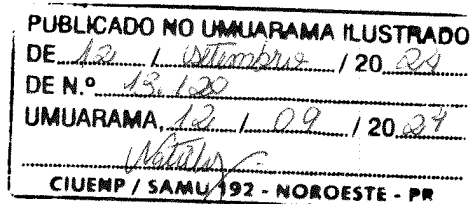 PUBLICADO NO UMUARAMA ILUSTRADO
DE 12 / setembro / 20 24
DE N.º 13.120
UMUARAMA, 12 / 09 / 20 24
CIUENP / SAMU 192 - NOROESTE - PR